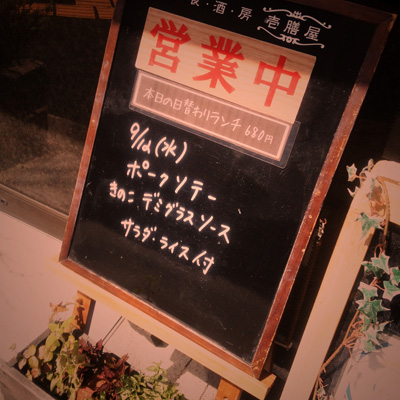 酒・房 壱膳屋
営業中
本日の日替わりランチ 680円
9/12(水)
ポークソテー
きのこデミグラスソース
サラダ・ライス付